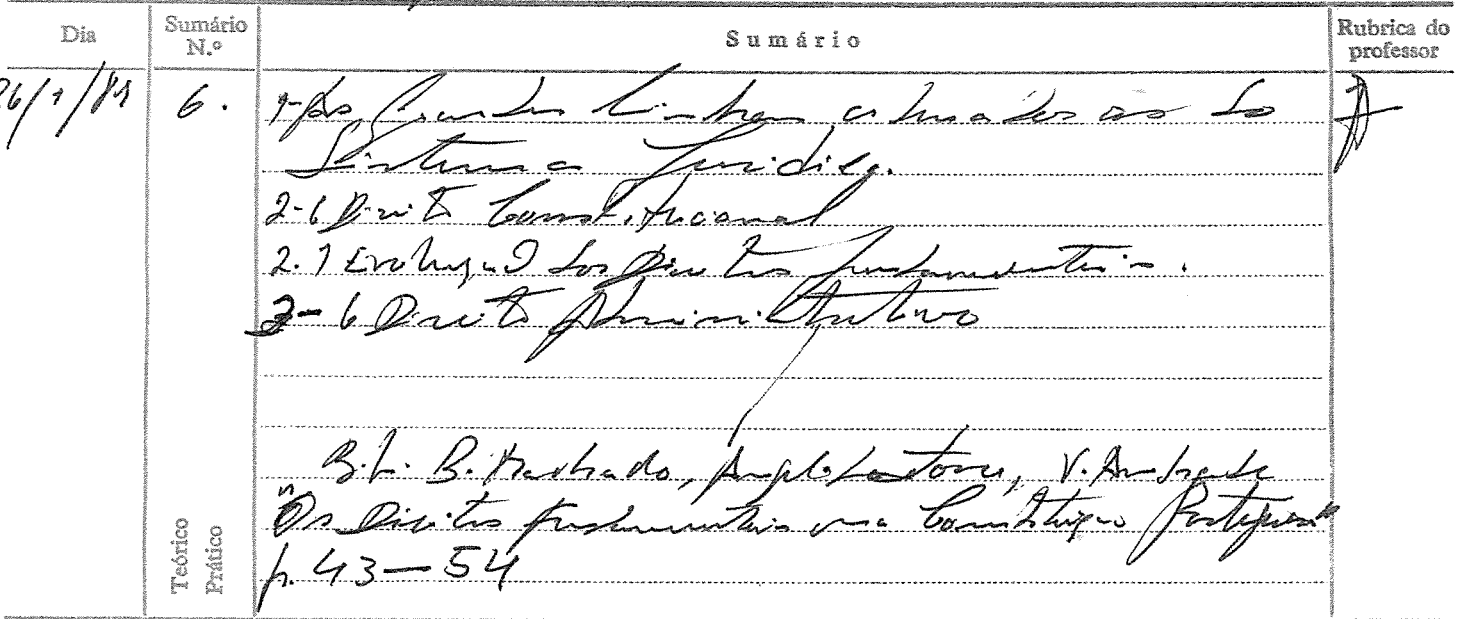 Dia
Sumário N.º
Sumário
Rubrica do professor
6.
1- As Grandes Linhas ordenadoras do
Sistema Jurídico.
2- O Direito Constitucional
2.1 Evolução dos Direitos fundamentais.
3- O Direito Administrativo
B. Machado, V. Andrade
"Os Direitos fundamentais na Constituição Portuguesa"
p. 43-54
Teórico
Prático